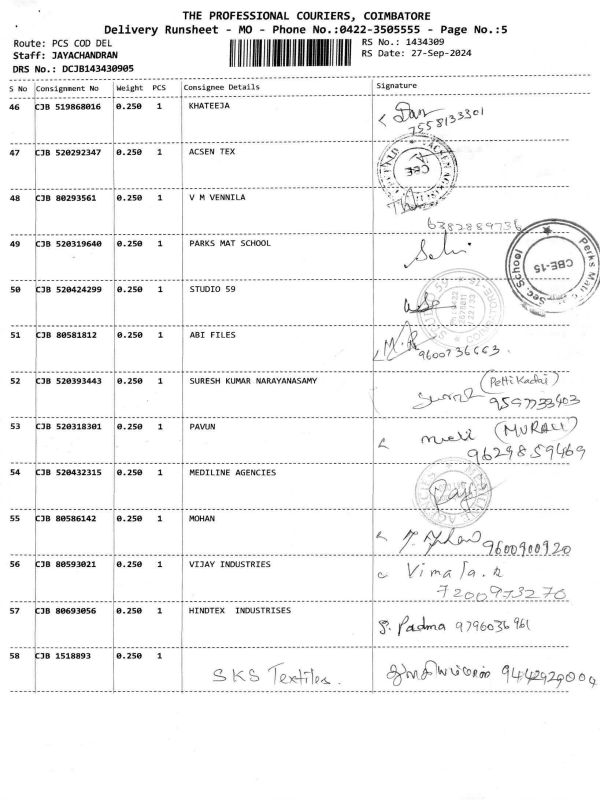 THE PROFESSIONAL COURIERS, COIMBATORE
Delivery Runsheet - MO - Phone No.:0422-3505555 - Page No.:5
Route: PCS COD DEL RS No.: 1434309
Staff: JAYACHANDRAN RS Date: 27-Sep-2024
DRS No.: DCJB143430905
S No Consignment No Weight PCS Consignee Details Signature
46 CJB 519868016 0.250 1 KHATEEJA
7558133301
47 CJB 520292347 0.250 1 ACSEN TEX
CBE
48 CJB 80293561 0.250 1 V M VENNILA
6382889736
49 CJB 520319640 0.250 1 PARKS MAT SCHOOL
Parks Mat Sec. School CBE-15
50 CJB 520424299 0.250 1 STUDIO 59
51 CJB 80581812 0.250 1 ABI FILES
9600736663.
52 CJB 520393443 0.250 1 SURESH KUMAR NARAYANASAMY (Petti Kadai)
9597733403
53 CJB 520318301 0.250 1 PAVUN (MURALI)
9629859469
54 CJB 520432315 0.250 1 MEDILINE AGENCIES
55 CJB 80586142 0.250 1 MOHAN
9600900920
56 CJB 80593021 0.250 1 VIJAY INDUSTRIES Vimala.R
7200973270
57 CJB 80693056 0.250 1 HINDTEX INDUSTRISES
P. Padma 9796036961
58 CJB 1518893 0.250 1
SKS Textiles. 9442929004